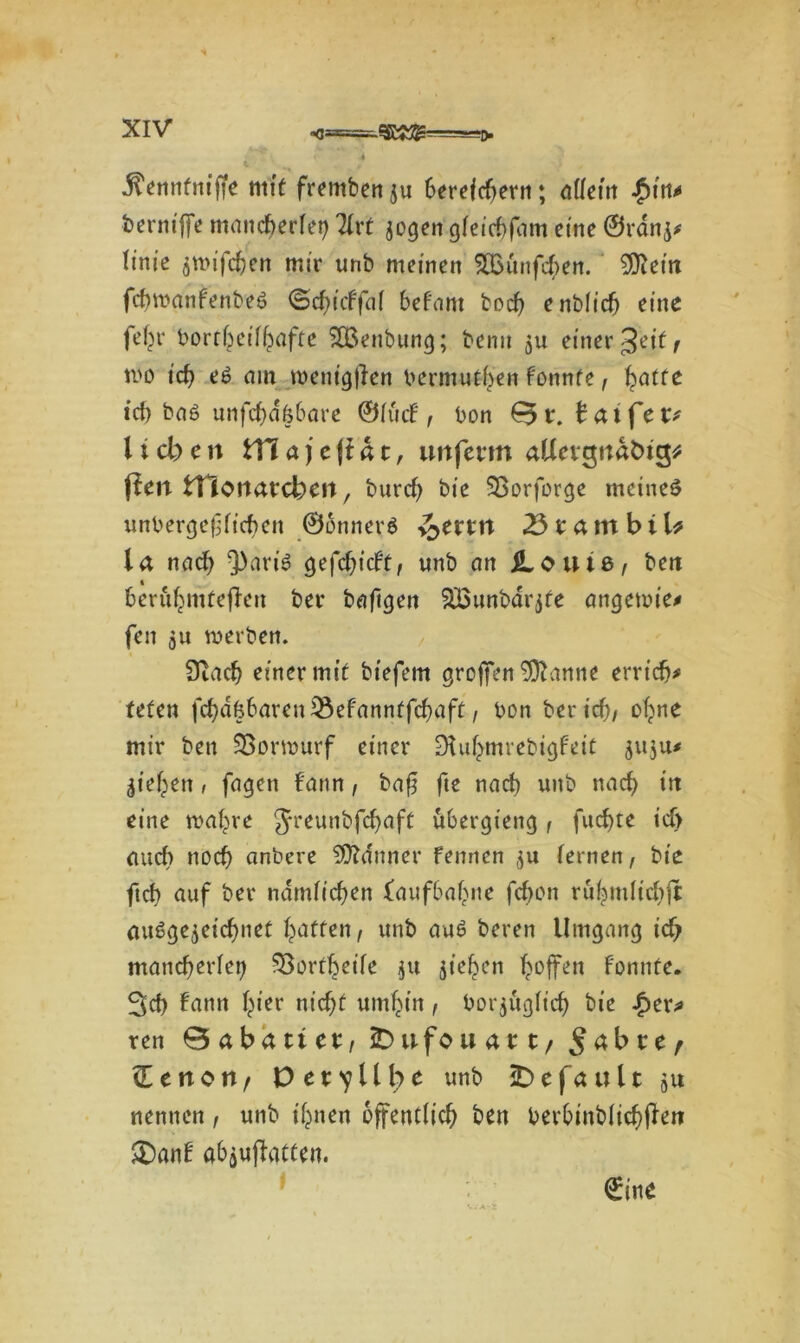 XIV
Kenntniſſe mit fremden zu bereichern; allein Hin⸗
derniſſe mancherley Art zogen gleichſam eine Gränz⸗
linie zwiſchen mir und meinen Wünſchen. Mein
ſchwankendes Schickſal bekam doch endlich eine
ſehr vortheilhafte Wendung; denn zu einer Zeit,
wo ich es am wenigſten vermuthen konnte, hatte
ich das unſchätzbare Glück, von Sr. kaiſer⸗
lichen Majeſtät, unſerm allergnädig⸗
ſten Monarchen, durch die Vorſorge meines
unvergeßlichen Gönners Herrn Brambil⸗
la nach Paris geſchickt, und an Louis, den
berühmteſten der daſigen Wundärzte angewie⸗
ſen zu werden.
Nach einer mit dieſem groſſen Manne errich⸗
teten ſchätzbaren Bekanntſchaft, von der ich, ohne
mir den Vorwurf einer Ruhmredigkeit zuzu⸗
ziehen, ſagen kann, daß ſie nach und nach in
eine wahre Freundſchaft übergieng, ſuchte ich
auch noch andere Männer kennen zu lernen, die
ſich auf der nämlichen Laufbahne ſchon rühmlichſt
ausgezeichnet hatten, und aus deren Umgang ich
mancherley Vortheile zu ziehen hoffen konnte.
Ich kann hier nicht umhin, vorzüglich die Her⸗
ren Sabatier, Dufouart, Fabre,
Tenon, Peryllhe und Default zu
nennen, und ihnen öffentlich den verbindlichſten
Dank abzuſtatten.
Eine